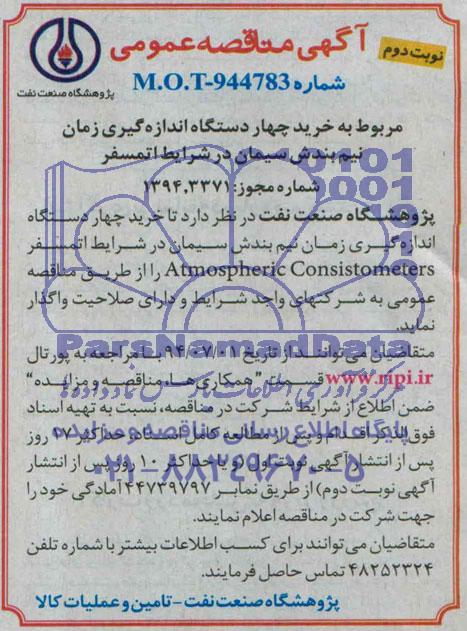 نوبت دوم
آگهی مناقصه عمومی
شماره M.O.T-944783
پژوهشگاه صنعت نفت
مربوط به خرید چهار دستگاه اندازه‌گیری زمان
نیم بندش سیمان در شرایط اتمسفر
شماره مجوز: ۱۳۹۴,۳۳۷۱
پژوهشگاه صنعت نفت در نظر دارد تا خرید چهار دستگاه
اندازه‌گیری زمان نیم بندش سیمان در شرایط اتمسفر
Atmospheric Consistometers را از طریق مناقصه
عمومی به شرکتهای واجد شرایط و دارای صلاحیت واگذار
نماید.
متقاضیان می‌توانند از تاریخ ۹۴/۰۷/۰۱ با مراجعه به پورتال
www.ripi.ir قسمت "همکاری‌ها، مناقصه و مزایده"
ضمن اطلاع از شرایط شرکت در مناقصه، نسبت به تهیه اسناد
فوق‌الذکر اقدام و پس از مطالعه کامل اسناد، حداکثر ۱۷ روز
پس از انتشار آگهی نوبت اول (و یا حداکثر ۱۰ روز پس از انتشار
آگهی نوبت دوم) از طریق نمابر ۴۴۷۳۹۷۹۷ آمادگی خود را
جهت شرکت در مناقصه اعلام نمایند.
متقاضیان می‌توانند برای کسب اطلاعات بیشتر با شماره تلفن
۴۸۲۵۲۳۲۴ تماس حاصل فرمایند.
پژوهشگاه صنعت نفت - تامین و عملیات کالا
ParsNamadData
پایگاه اطلاع رسانی مناقصه و مزایده
۰۲۱-۸۸۳۴۹۶۷۰-۵